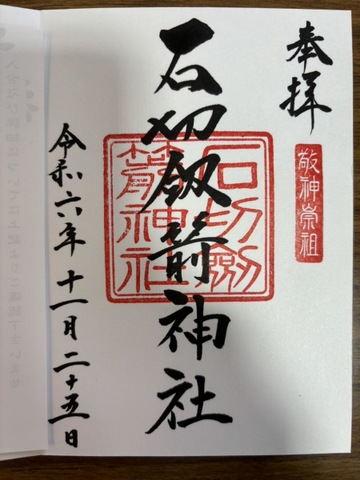 奉拝
敬神崇祖
石切劔箭神社
石切劔
箭神社
令和六年十一月二十五日